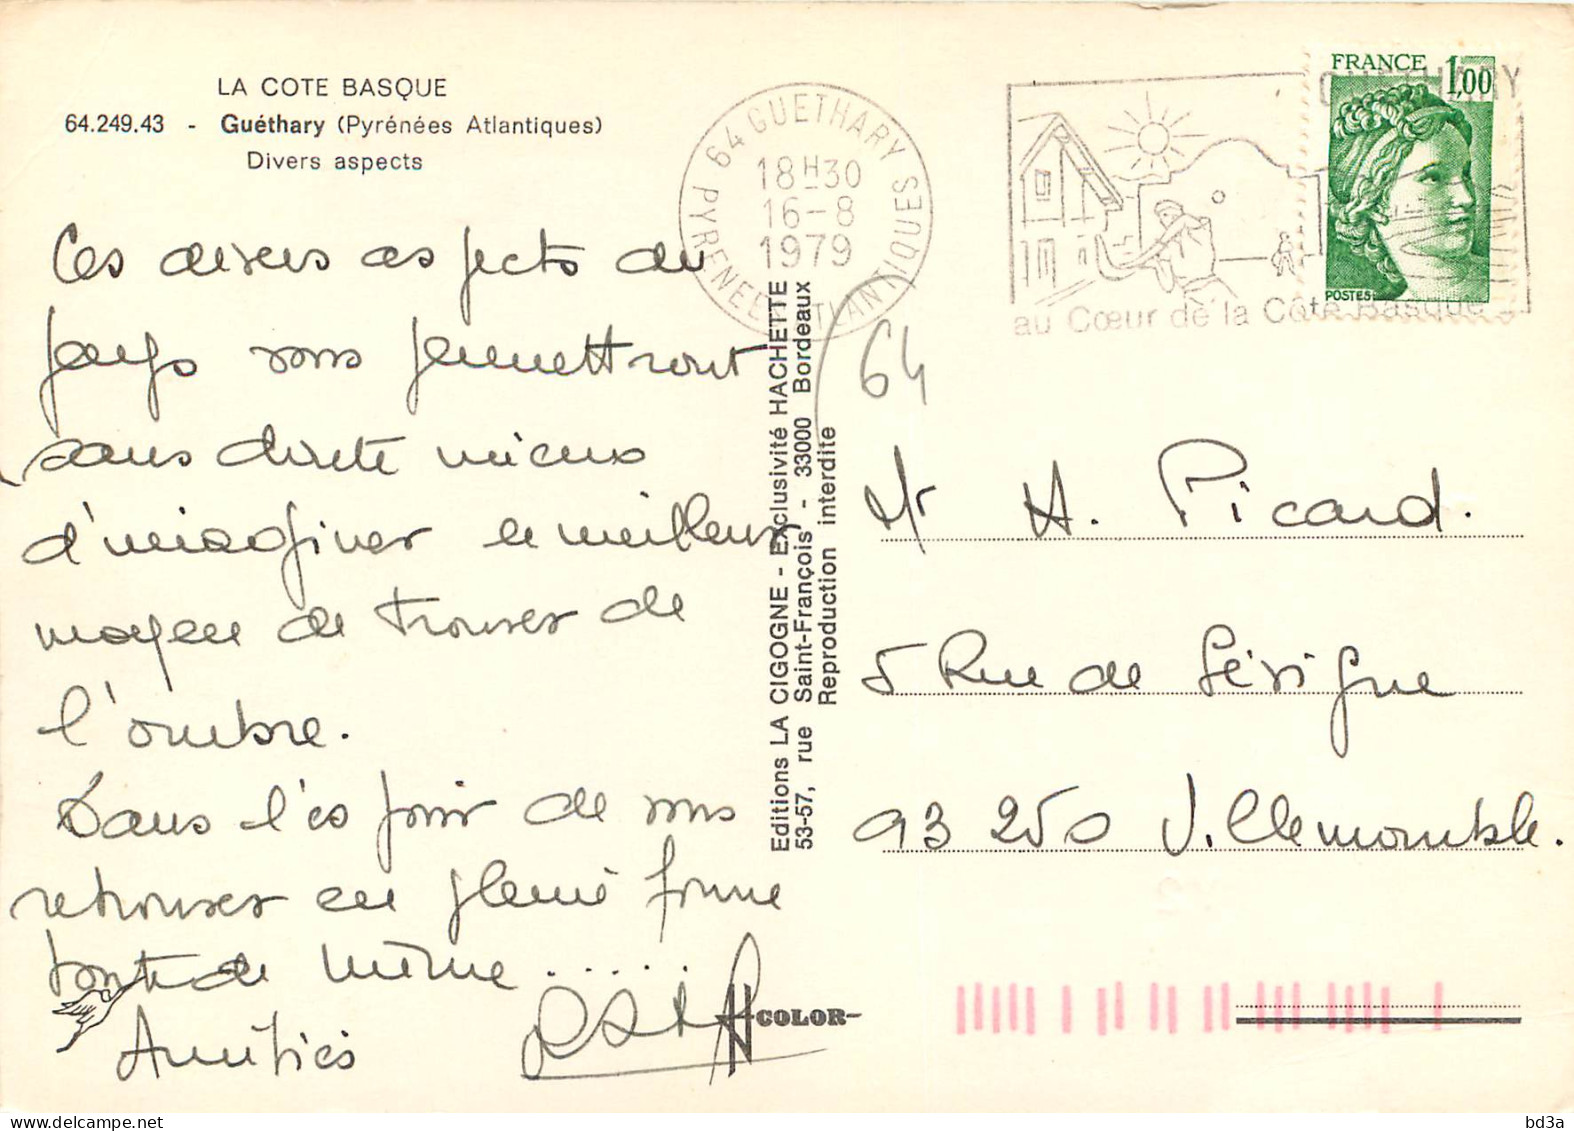 LA COTE BASQUE
64.249.43 - Guéthary (Pyrénées Atlantiques)
Divers aspects
Ces divers aspects du
pays vous permettront
sans doute mieux
d'imaginer le meilleur
moyen de trouver de
l'ombre.
Dans l'espoir de vous
retrouver en pleine forme
tout de même.....
Amitiés
64 GUETHARY
PYRENEES ATLANTIQUES
18H30
16-8
1979
GUETHARY
au Cœur de la Côte Basque
FRANCE 1,00
POSTES
64
Editions LA CIGOGNE - Exclusivité HACHETTE
53-57, rue Saint-François - 33000 Bordeaux
Reproduction interdite
Mr H. Picard.
5 Rue de Sévigné
93250 Villemomble.
COLOR
delcampe.net
bd3a